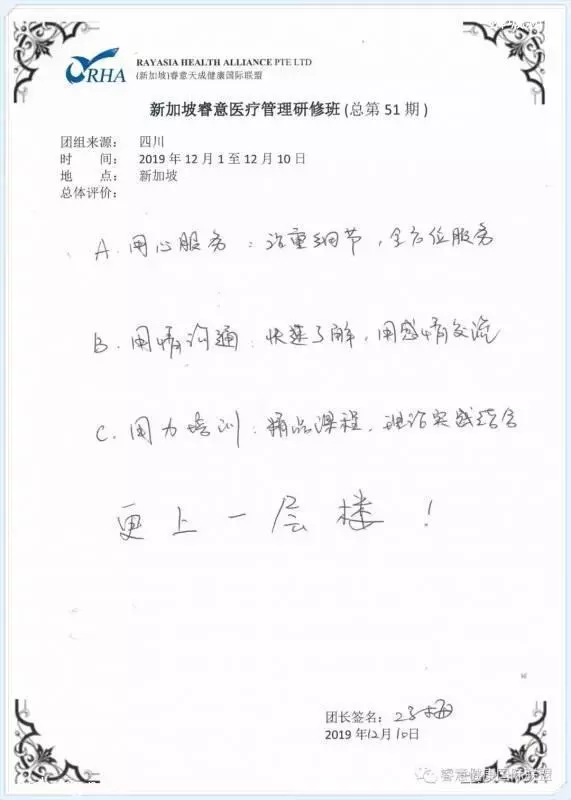 RHA
RAYASIA HEALTH ALLIANCE PTE LTD
(新加坡)睿意天成健康国际联盟
新加坡睿意医疗管理研修班(总第 51 期)
团组来源: 四川
时 间: 2019 年 12 月 1 至 12 月 10 日
地 点: 新加坡
总体评价:
A. 用心服务:注重细节,全方位服务
B. 用情沟通:快速了解,用感情交流
C. 用力培训:精品课程,理论实践结合
更上一层楼!
团长签名:
2019 年12月10日
睿意健康国际联盟